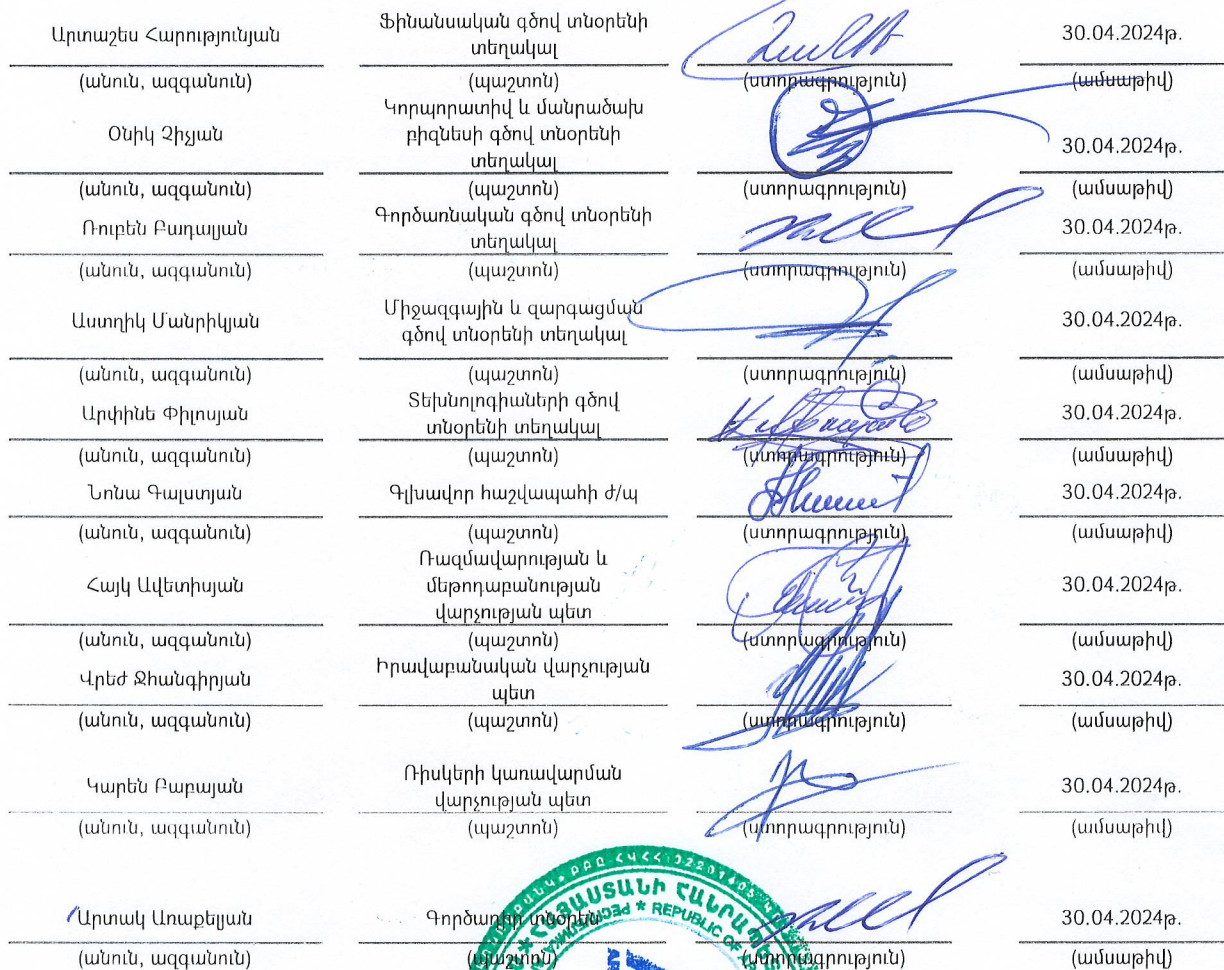 Արտաշես Հարությունյան
Ֆինանսական գծով տնօրենի
տեղակալ
30.04.2024թ.
(անուն, ազգանուն)
(պաշտոն)
(ստորագրություն)
(ամսաթիվ)
Օնիկ Չիչյան
Կորպորատիվ և մանրածախ
բիզնեսի գծով տնօրենի
տեղակալ
30.04.2024թ.
(անուն, ազգանուն)
(պաշտոն)
(ստորագրություն)
(ամսաթիվ)
Ռուբեն Բադալյան
Գործառնական գծով տնօրենի
տեղակալ
30.04.2024թ.
(անուն, ազգանուն)
(պաշտոն)
(ստորագրություն)
(ամսաթիվ)
Աստղիկ Մանրիկյան
Միջազգային և զարգացման
գծով տնօրենի տեղակալ
30.04.2024թ.
(անուն, ազգանուն)
(պաշտոն)
(ստորագրություն)
(ամսաթիվ)
Արփինե Փիլոսյան
Տեխնոլոգիաների գծով
տնօրենի տեղակալ
30.04.2024թ.
(անուն, ազգանուն)
(պաշտոն)
(ստորագրություն)
(ամսաթիվ)
Նոնա Գալստյան
Գլխավոր հաշվապահի ժ/պ
30.04.2024թ.
(անուն, ազգանուն)
(պաշտոն)
(ստորագրություն)
(ամսաթիվ)
Հայկ Ավետիսյան
Ռազմավարության և
մեթոդաբանության
վարչության պետ
30.04.2024թ.
(անուն, ազգանուն)
(պաշտոն)
(ստորագրություն)
(ամսաթիվ)
Վրեժ Ջհանգիրյան
Իրավաբանական վարչության
պետ
30.04.2024թ.
(անուն, ազգանուն)
(պաշտոն)
(ստորագրություն)
(ամսաթիվ)
Կարեն Բաբայան
Ռիսկերի կառավարման
վարչության պետ
30.04.2024թ.
(անուն, ազգանուն)
(պաշտոն)
(ստորագրություն)
(ամսաթիվ)
Արտակ Առաքելյան
Գործադիր տնօրեն
30.04.2024թ.
(անուն, ազգանուն)
(պաշտոն)
(ստորագրություն)
(ամսաթիվ)
ՀԱՅԱՍՏԱՆԻ
REPUBLIC OF